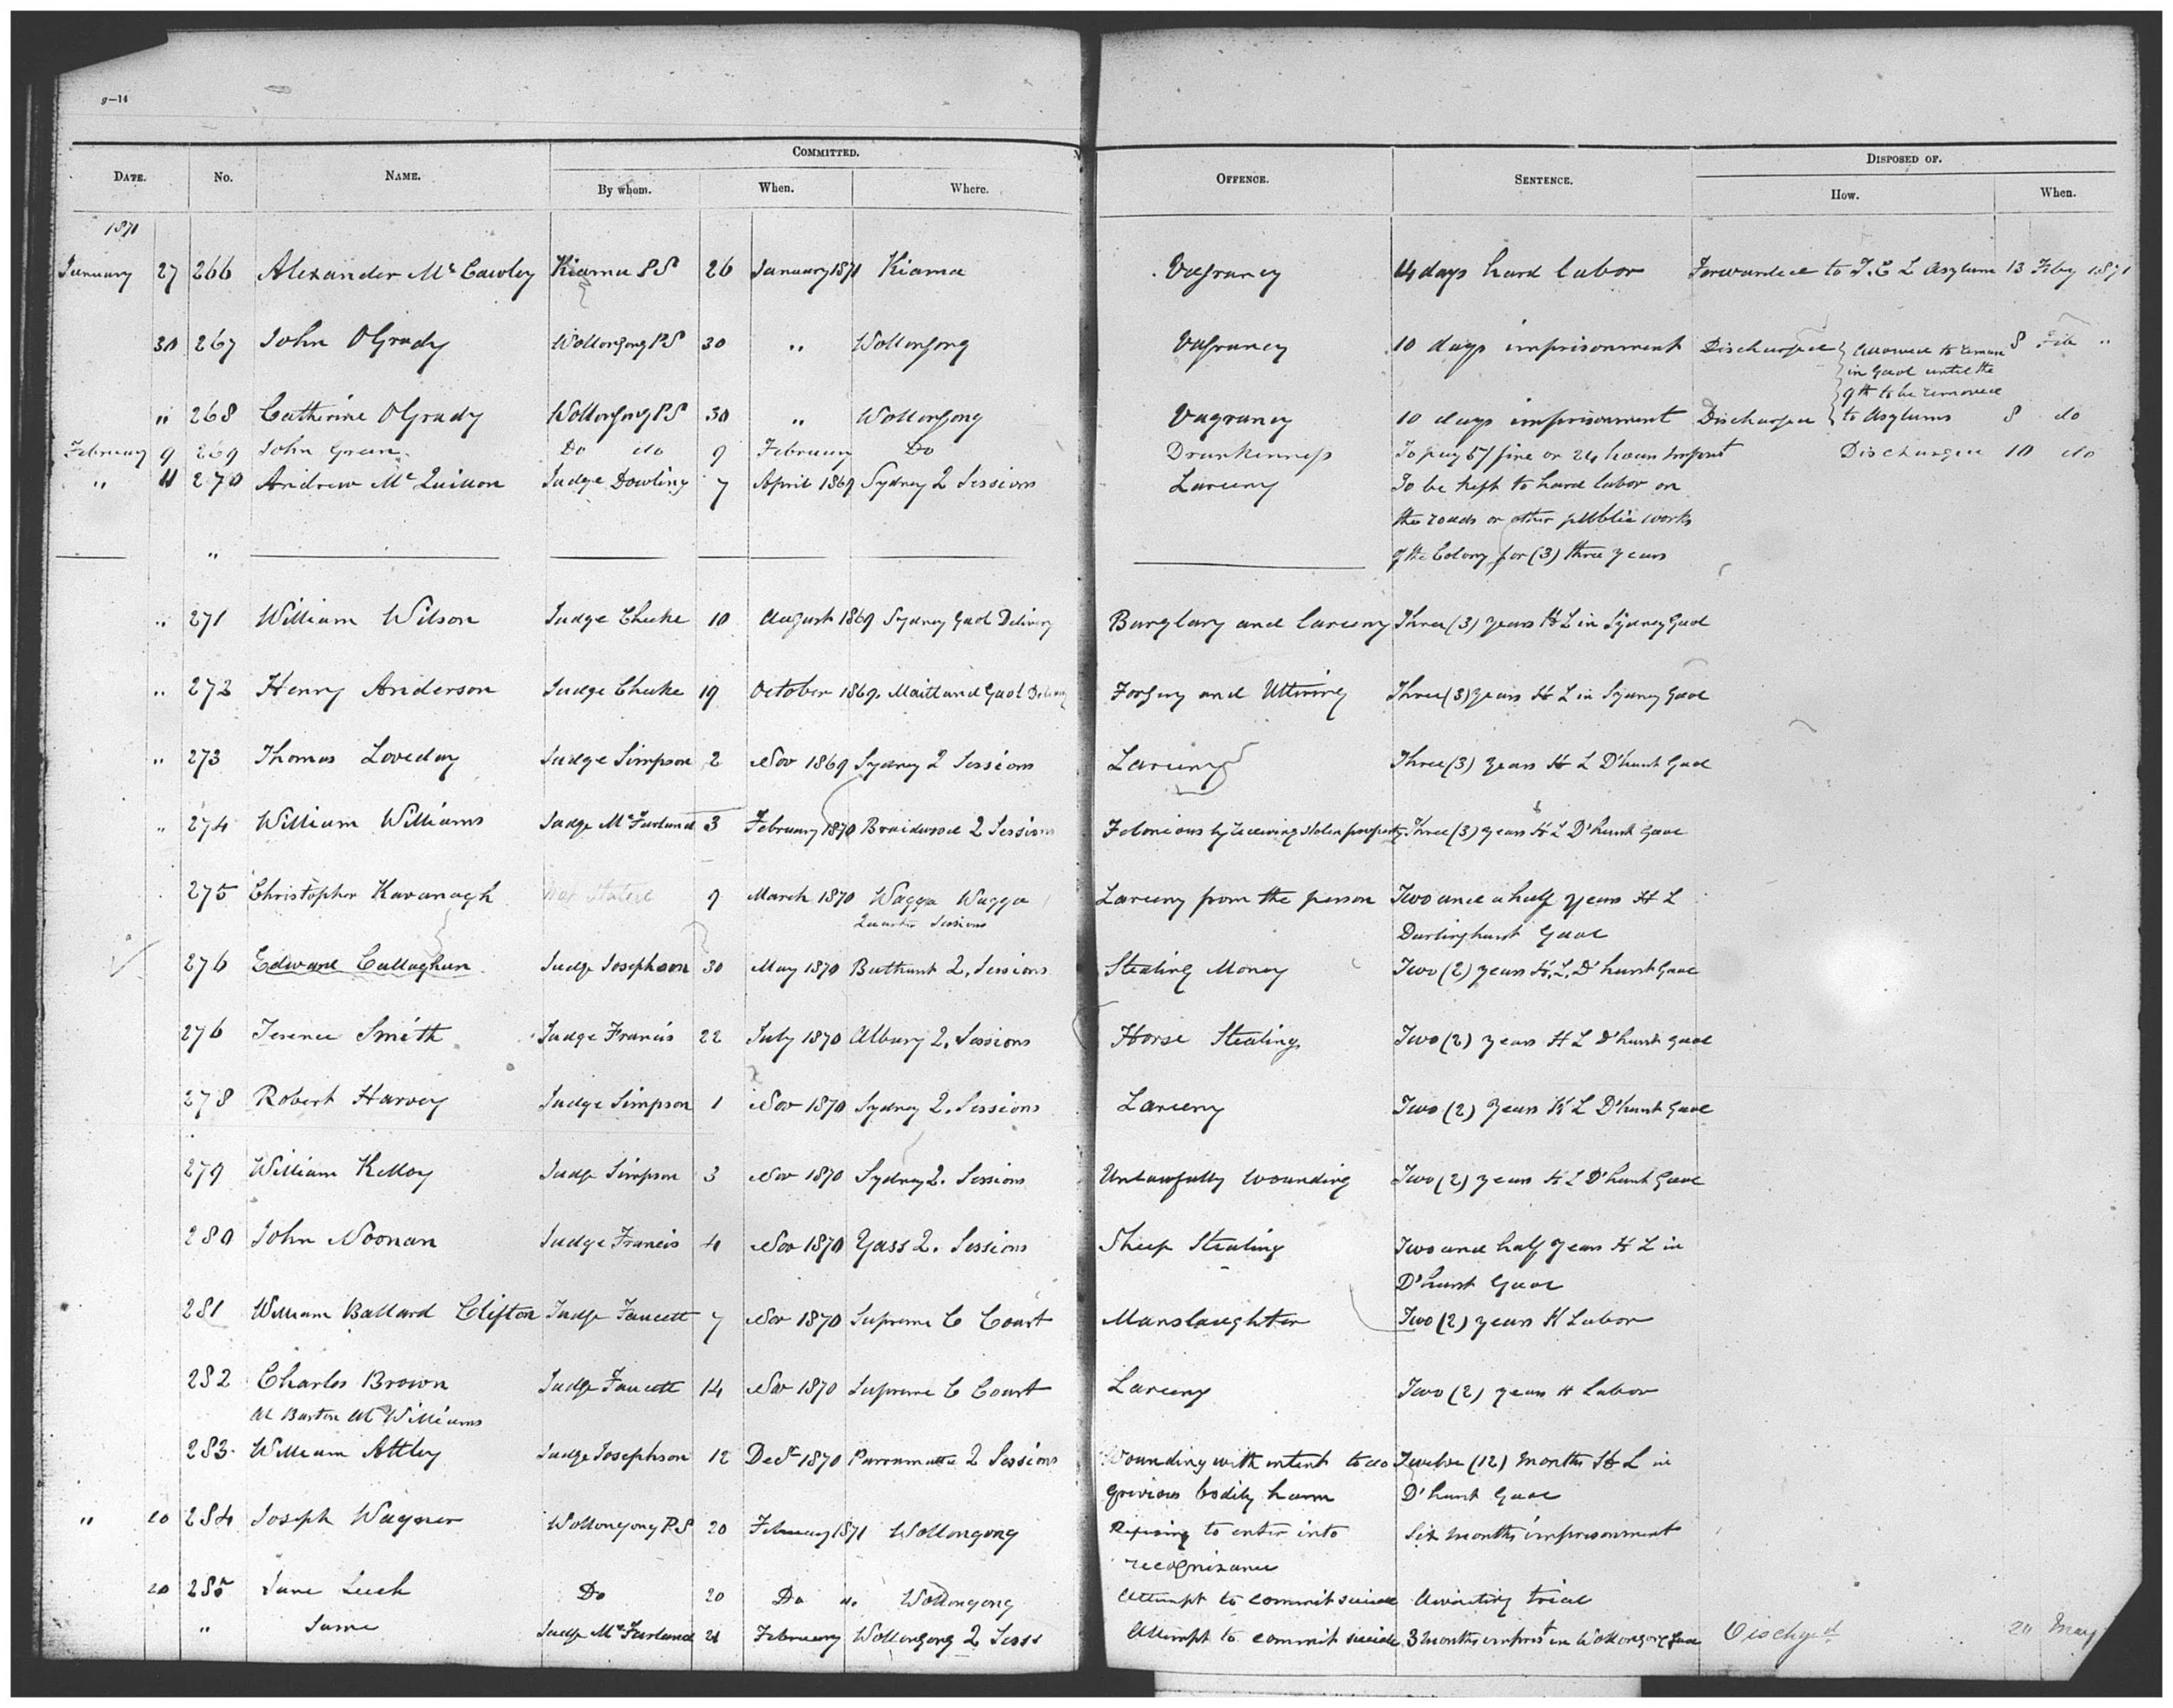 9—14
COMMITTED.
DISPOSED OF.
DATE. No. NAME. By whom. When. Where. OFFENCE. SENTENCE. How. When.
1871
January 27 266 Alexander McCawley Kiama P S 26 January 1871 Kiama Vagrancy 14 days hard labor Forwarded to T. C L Asylum 13 Feby 1871
30 267 John OGrady Wollongong P S 30 " Wollongong Vagrancy 10 days imprisonment Discharged allowed to remain 8 Feb "
in Gaol until the
9th to be removed
" 268 Catherine OGrady Wollongong P S 30 " Wollongong Vagrancy 10 days imprisonment Discharged to Asylums 8 do
February 9 269 John Green Do do 9 February Do Drunkenness To pay 5/ fine or 24 hours Imprist Discharged 10 do
" 11 270 Andrew McQuinon Judge Dowling 7 April 1869 Sydney 2 Sessions Larceny To be kept to hard labor on
the roads or other public works
" of the Colony for (3) three years
" 271 William Wilson Judge Cheeke 10 August 1869 Sydney Gaol Delivery Burglary and larceny Three (3) years H L in Sydney Gaol
" 272 Henry Anderson Judge Cheeke 19 October 1869. Maitland Gaol Delivery Forgery and Uttering Three (3) years H L in Sydney Gaol
" 273 Thomas Loveday Judge Simpson 2 Nov 1869 Sydney 2 Sessions Larceny Three (3) years H L D'hurst Gaol
" 274 William Williams Judge McFarland 3 February 1870 Braidwood 2 Sessions Feloniously receiving stolen property Three (3) years H L D'hurst Gaol
275 Christopher Kavanagh Not Stated 9 March 1870 Wagga Wagga Larceny from the person Two and a half years H L
Quarter Sessions Darlinghurst Gaol
276 Edward Callaghan Judge Josephson 30 May 1870 Bathurst 2. Sessions Stealing Money Two (2) years H. L. D'hurst Gaol
276 Terence Smith Judge Francis 22 July 1870 Albury 2. Sessions Horse Stealing Two (2) years H L D'hurst Gaol
278 Robert Harvey Judge Simpson 1 Nov 1870 Sydney 2. Sessions Larceny Two (2) years H L D'hurst Gaol
279 William Kelloy Judge Simpson 3 Nov 1870 Sydney 2. Sessions Unlawfully wounding Two (2) years H L D'hurst Gaol
280 John Noonan Judge Francis 4 Nov 1870 Yass 2. Sessions Sheep Stealing Two and half years H L in
D'hurst Gaol
281 William Ballard Clifton Judge Faucett 7 Nov 1870 Supreme C Court Manslaughter Two (2) years H Labor
282 Charles Brown Judge Faucett 14 Nov 1870 Supreme C Court Larceny Two (2) years H Labor
al Barton al Williams
283. William Attley Judge Josephson 12 Decr 1870 Parramatta 2 Sessions Wounding with intent to do Twelve (12) months H L in
grivious bodily harm D'hurst Gaol
" 20 284 Joseph Wagner Wollongong P. S 20 February 1871 Wollongong Refusing to enter into Six months imprisonment
recognizance
20 285 Jane Leech Do 20 Do do Wollongong Attempt to commit suicide Awaiting trial
" Same Judge McFarland 21 February Wollongong 2 Sess Attempt to commit suicide 3 months imprist in Wollongong Gaol Dischgd 20 May